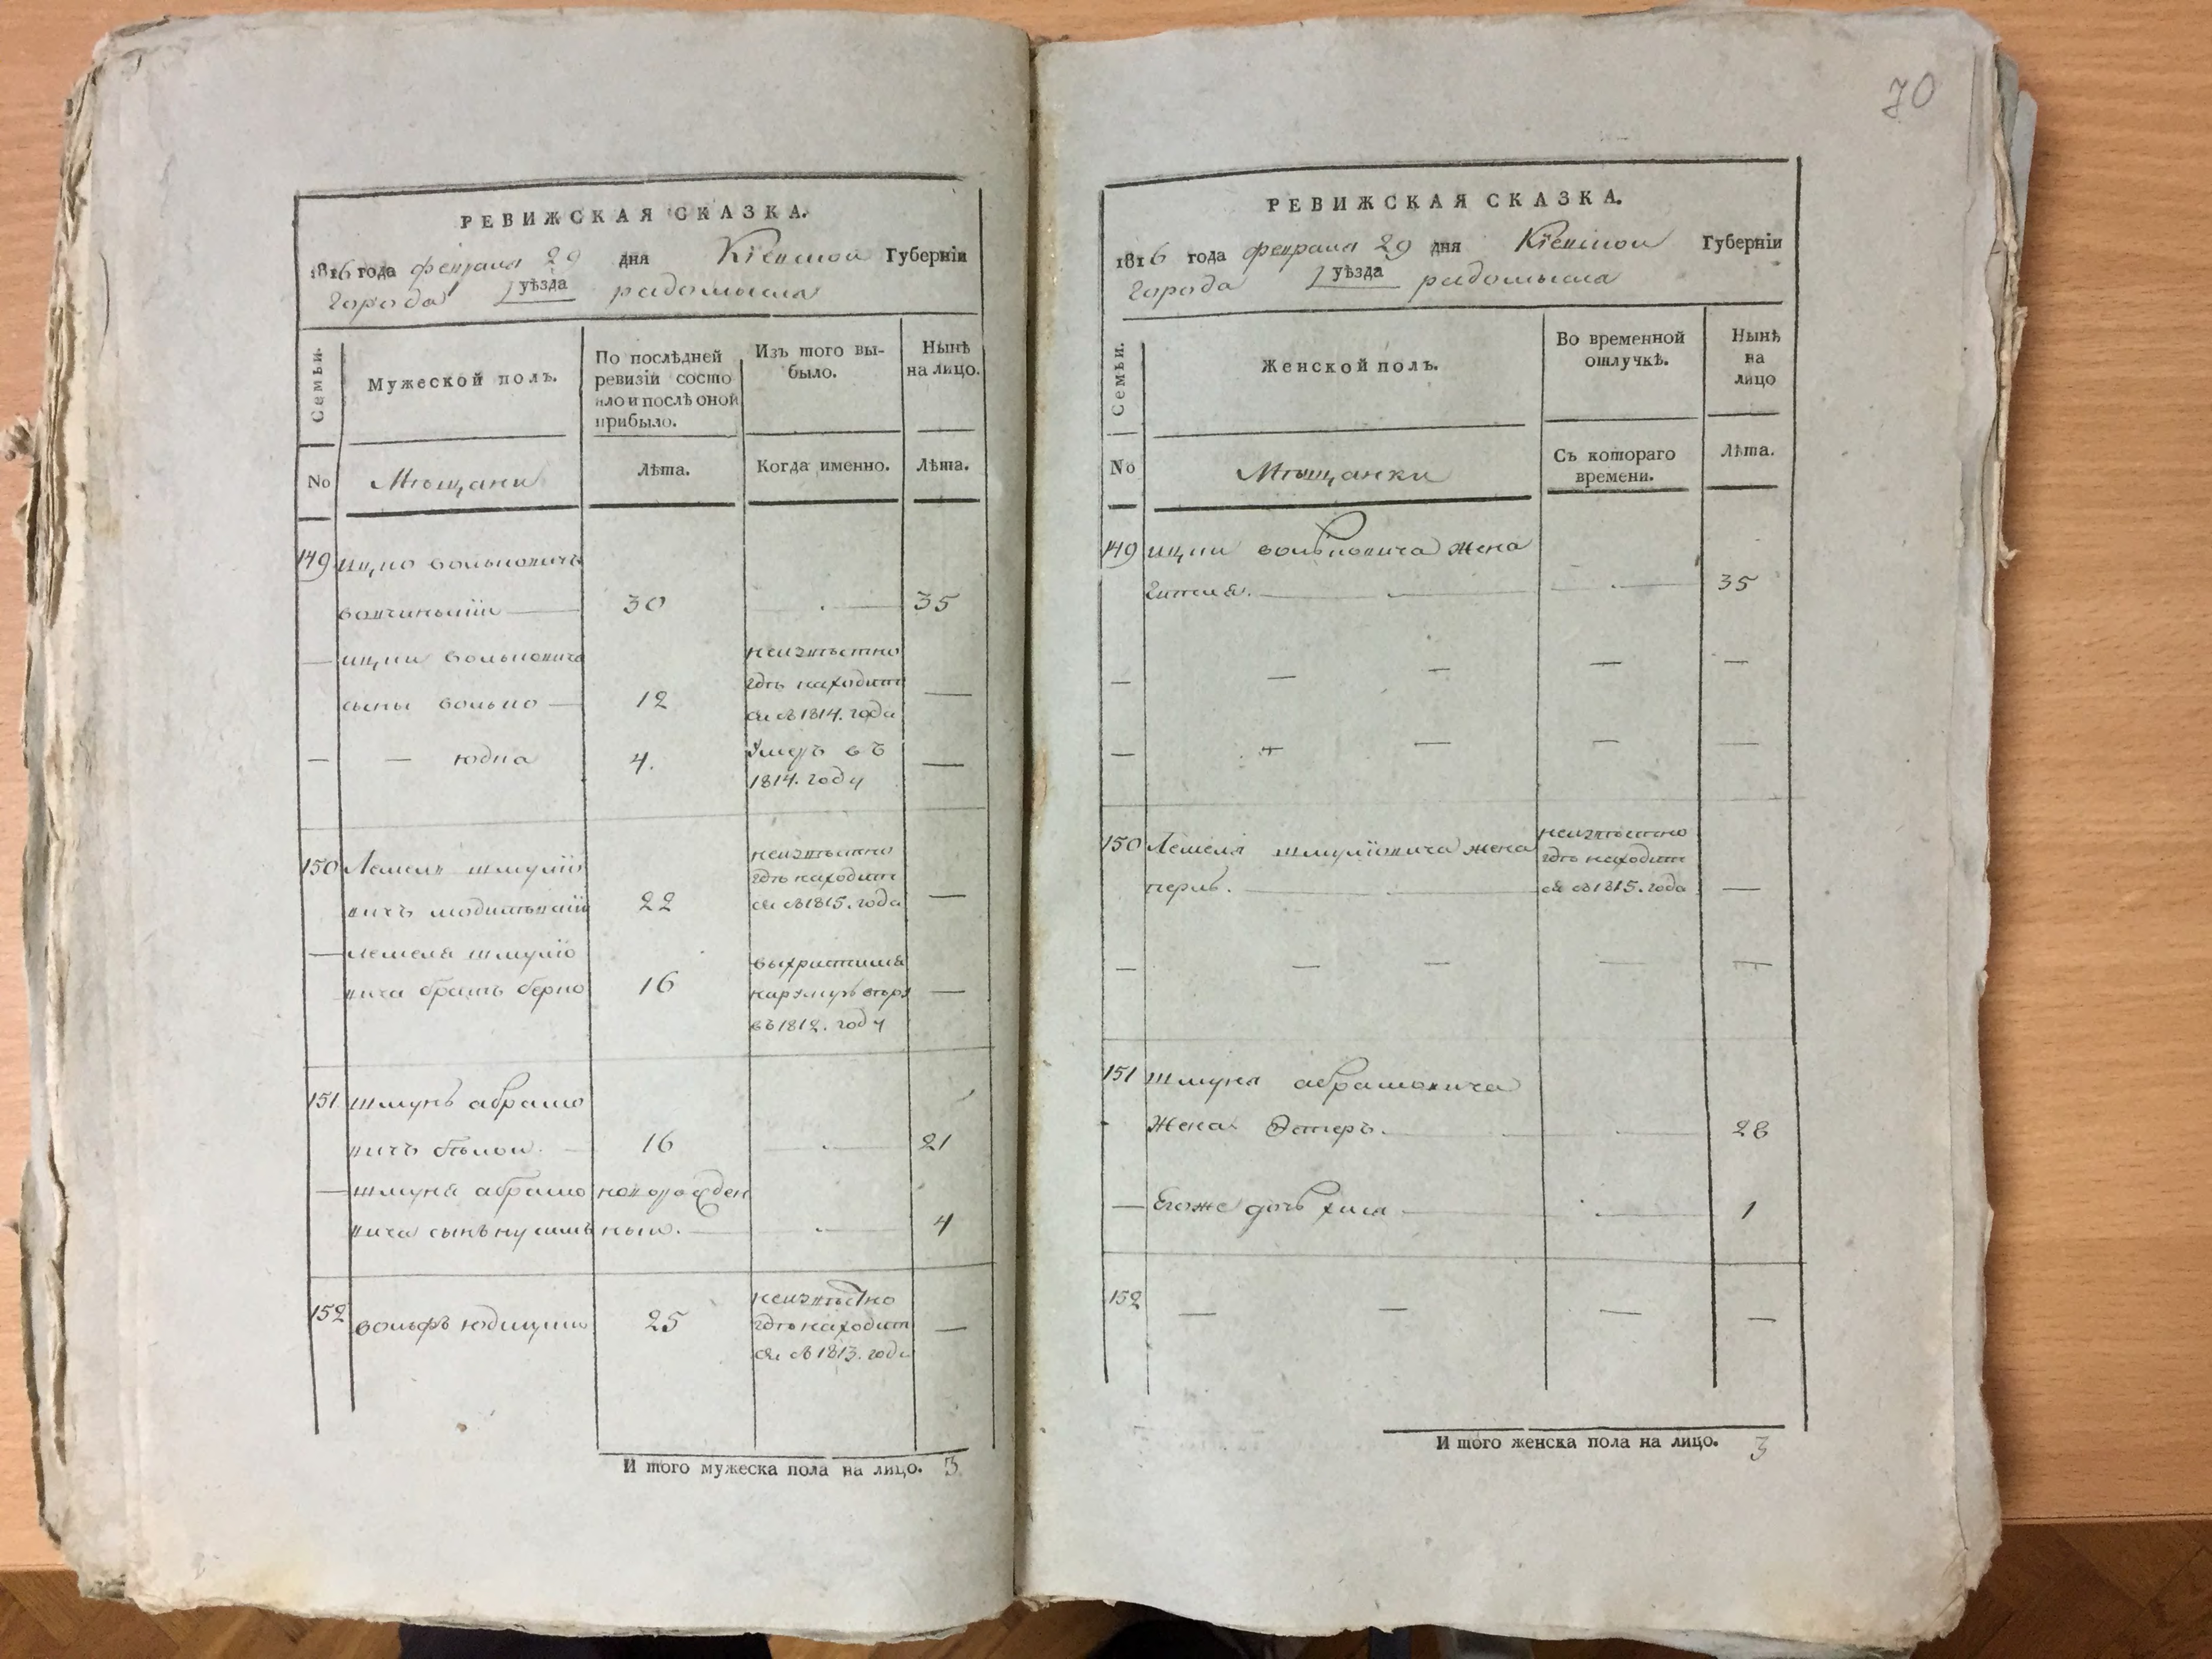 РЕВИЖСКАЯ СКАЗКА.
1816 года февраля 29 дня Кіевской Губерніи
Города уѣзда радомысля
Семьи.
Мужеской полъ.
По послѣдней
ревизіи состо
яло и послѣ оной
прибыло.
Изъ того вы-
было.
Нынѣ
на лицо.
No
Мѣщани
Лѣта.
Когда именно.
Лѣта.
149 ицко вольковичъ
30 35
— ицки вольковича неизвѣстно
сыны волько — 12 гдѣ находит
ся съ 1814. года —
— — юдка 4. Умеръ въ
1814. году —
150 Лемель шмуліо неизвѣстно
вичъ 22 гдѣ находит
ся съ 1815. года —
— лемеля шмуліо
вича братъ берко 16
въ 1812. году —
151 шмунь абрамо
вичъ бѣлой. — 16 21
— шмуня абрамо новорожден
вича сынъ нусимъ ный. — 4
152 вольфъ 25 неизвѣстно
гдѣ находит
ся съ 1813. года —
И того мужеска пола на лицо. 3
70
РЕВИЖСКАЯ СКАЗКА.
1816 года февраля 29 дня Кіевской Губерніи
Города уѣзда радомысля
Семьи.
Женской полъ.
Во временной
отлучкѣ.
Нынѣ
на
лицо
No
Мѣщанки
Съ котораго
времени.
Лѣта.
149 ицки вольковича жена
гитля. 35
150 Лемеля шмуліовича жена неизвѣстно
перль. гдѣ находит
ся съ 1815. года —
151 шмуня абрамовича
Жена Эстеръ. 28
— Егоже дочь хая 1
152
И того женска пола на лицо. 3